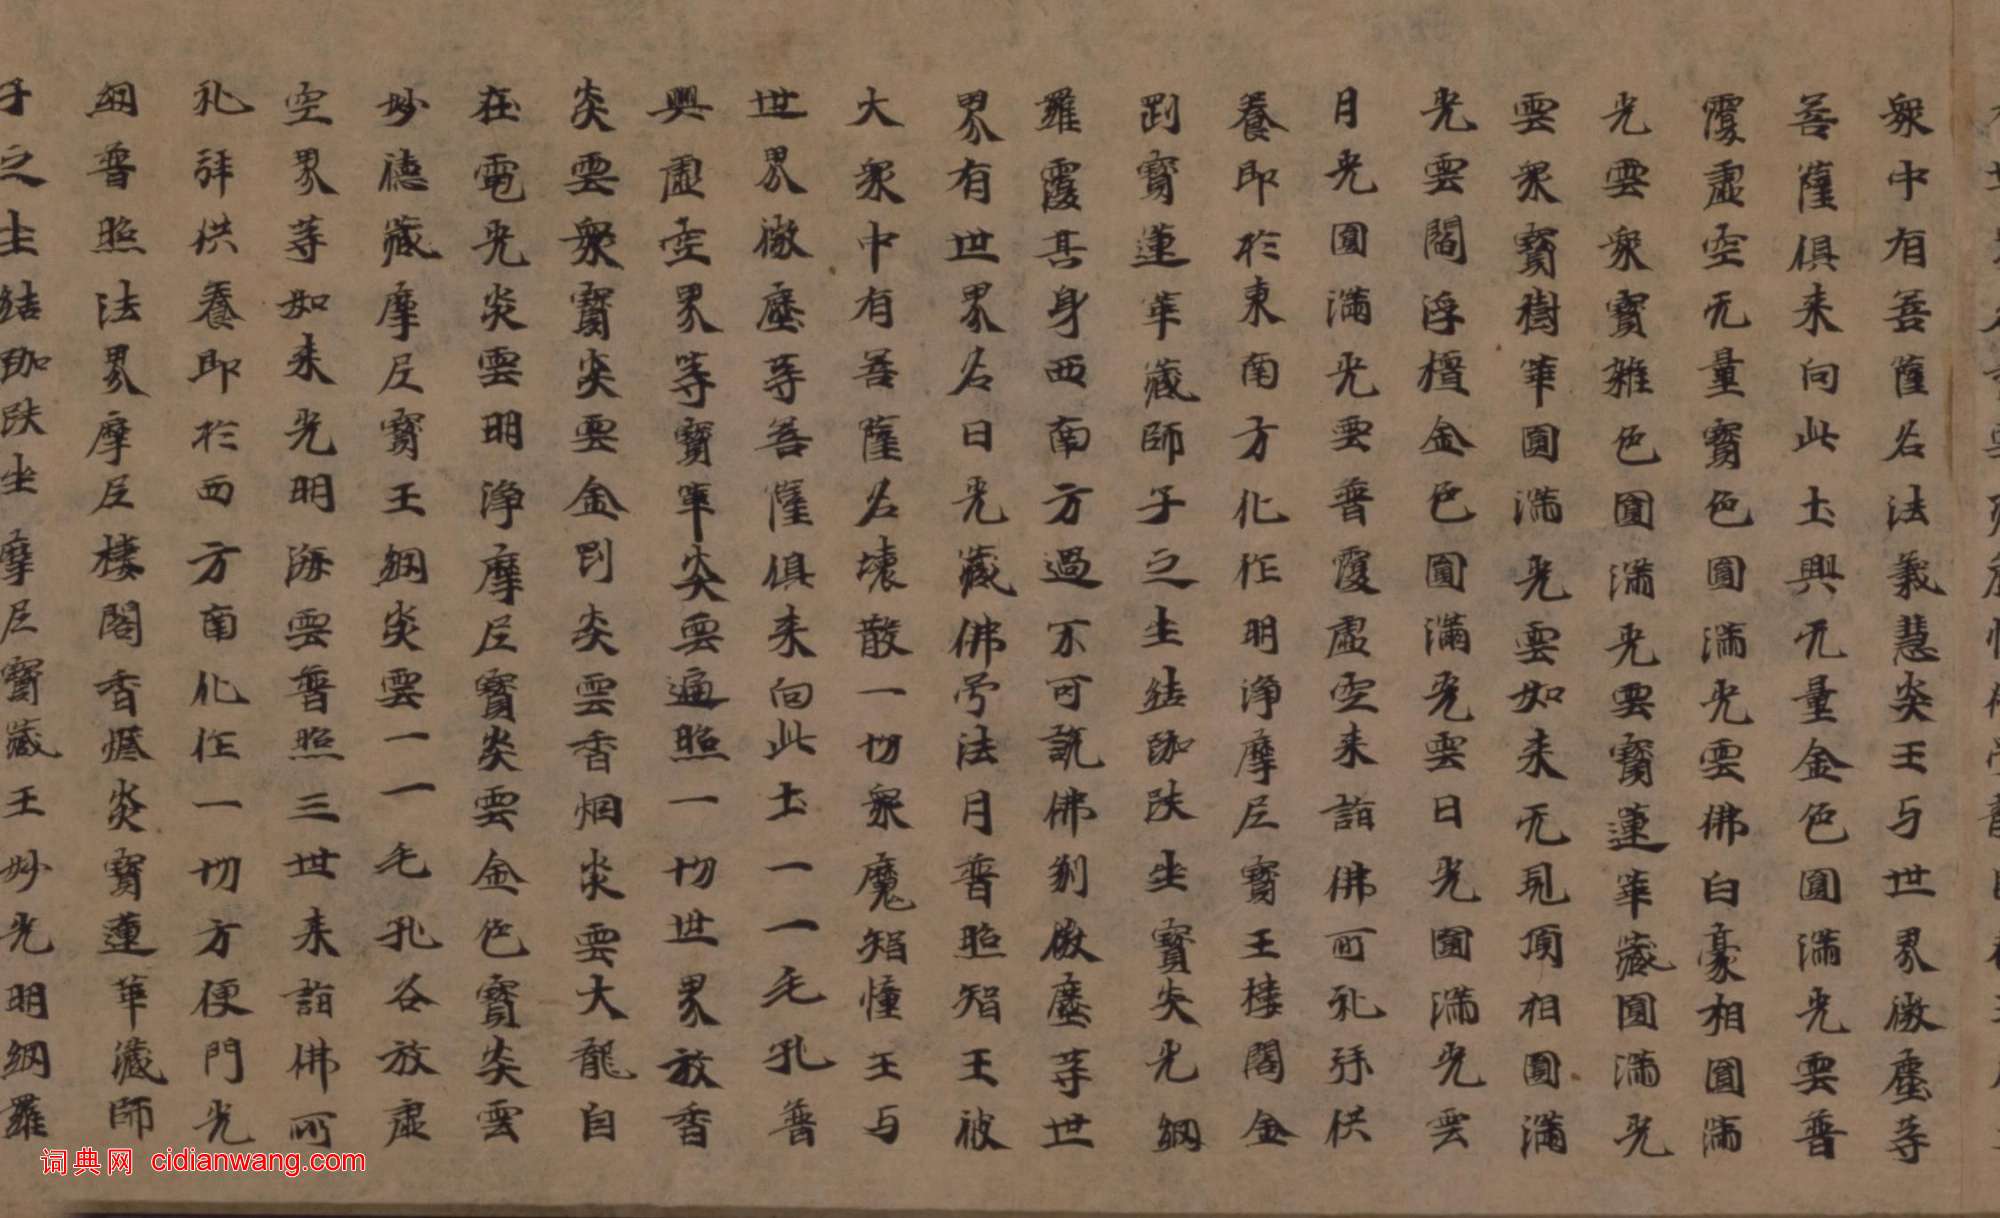 眾中有菩薩名法義慧炎王与世界微塵等
菩薩俱来向此土興无量金色圓滿光雲普
覆虛空无量寳色圓滿光雲佛白豪相圓滿
光雲眾寳雜色圓滿光雲寳蓮華藏圓滿光
雲眾寳樹華圓滿光雲如来无見頂相圓滿
光雲閻浮檀金色圓滿光雲日光圓滿光雲
月光圓滿光雲普覆虛空来詣佛所礼拜供
養即於東南方化作明淨摩尼寳王樓閣金
剛寳蓮華藏師子之坐結跏趺坐寳炎光網
羅覆其身西南方過不可說佛剎微塵等世
界有世界名日光藏佛号法月普照智王彼
大眾中有菩薩名壞散一切眾魔智憧王与
世界微塵等菩薩俱来向此土一一毛孔普
興虛空界等寳華炎雲遍照一切世界放香
炎雲眾寳炎雲金剛炎雲香烟炎雲大龍自
在電光炎雲明淨摩尼寳炎雲金色寳炎雲
妙德藏摩尼寳王網炎雲一一毛孔各放虛
空界等如来光明海雲普照三世来詣佛所
礼拜供養即於西方南化作一切方便門光
網普照法界摩尼樓閣香燈炎寳蓮華藏師
子之坐結跏趺坐摩尼寳藏王妙光明網羅
词典网 cidianwang.com